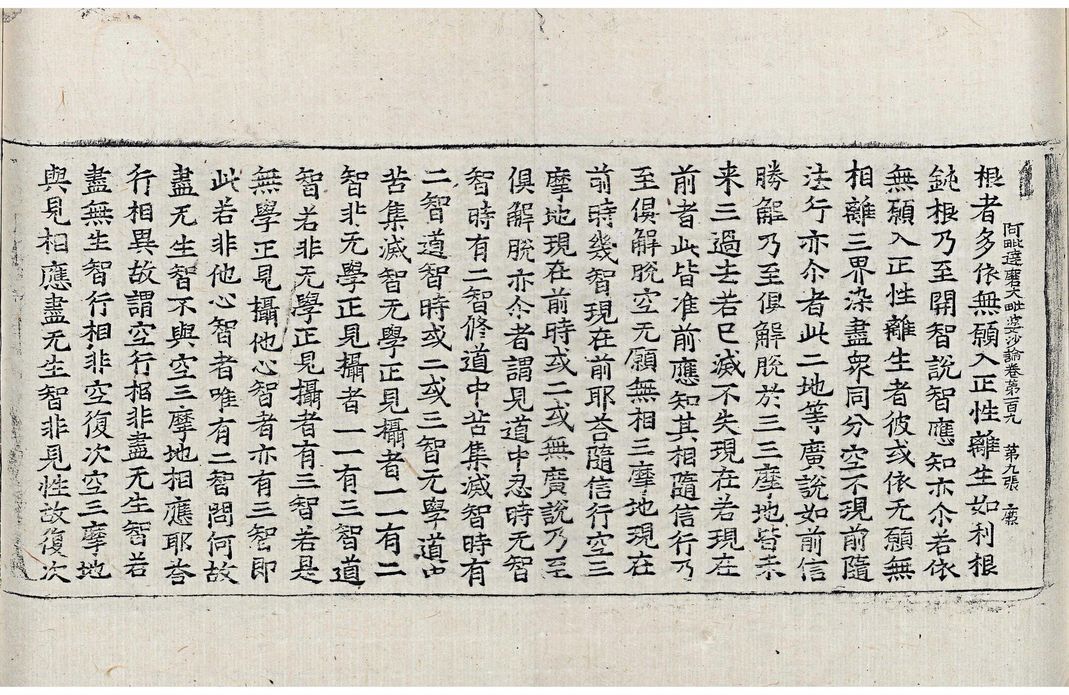 阿毗達磨大毗婆沙論卷第一百九 第九張
根者多依無願入正性離生如利根
鈍根乃至開智說智應知亦尒若依
無願入正性離生者彼或依无願無
相離三界染盡衆同分空不現前隨
法行亦尒者此二地等廣說如前信
勝解乃至俱解脫於三三摩地皆未
来三過去若已滅不失現在若現在
前者此皆准前應知其相隨信行乃
至俱解脫空无願無相三摩地現在
前時幾智現在前耶荅隨信行空三
摩地現在前時或二或無廣說乃至
俱解脫亦尒者謂見道中忍時无智
智時有二智修道中苦集滅智時有
二智道智時或二或三智无學道中
苦集滅智无學正見攝者一一有二
智非无學正見攝者一一有三智道
智若非无學正見攝者有三智若是
無學正見攝他心智者亦有三智即
此若非他心智者唯有二智問何故
盡无生智不與空三摩地相應耶荅
行相異故謂空行相非盡无生智若
盡無生智行相非空復次空三摩地
與見相應盡无生智非見性故復次